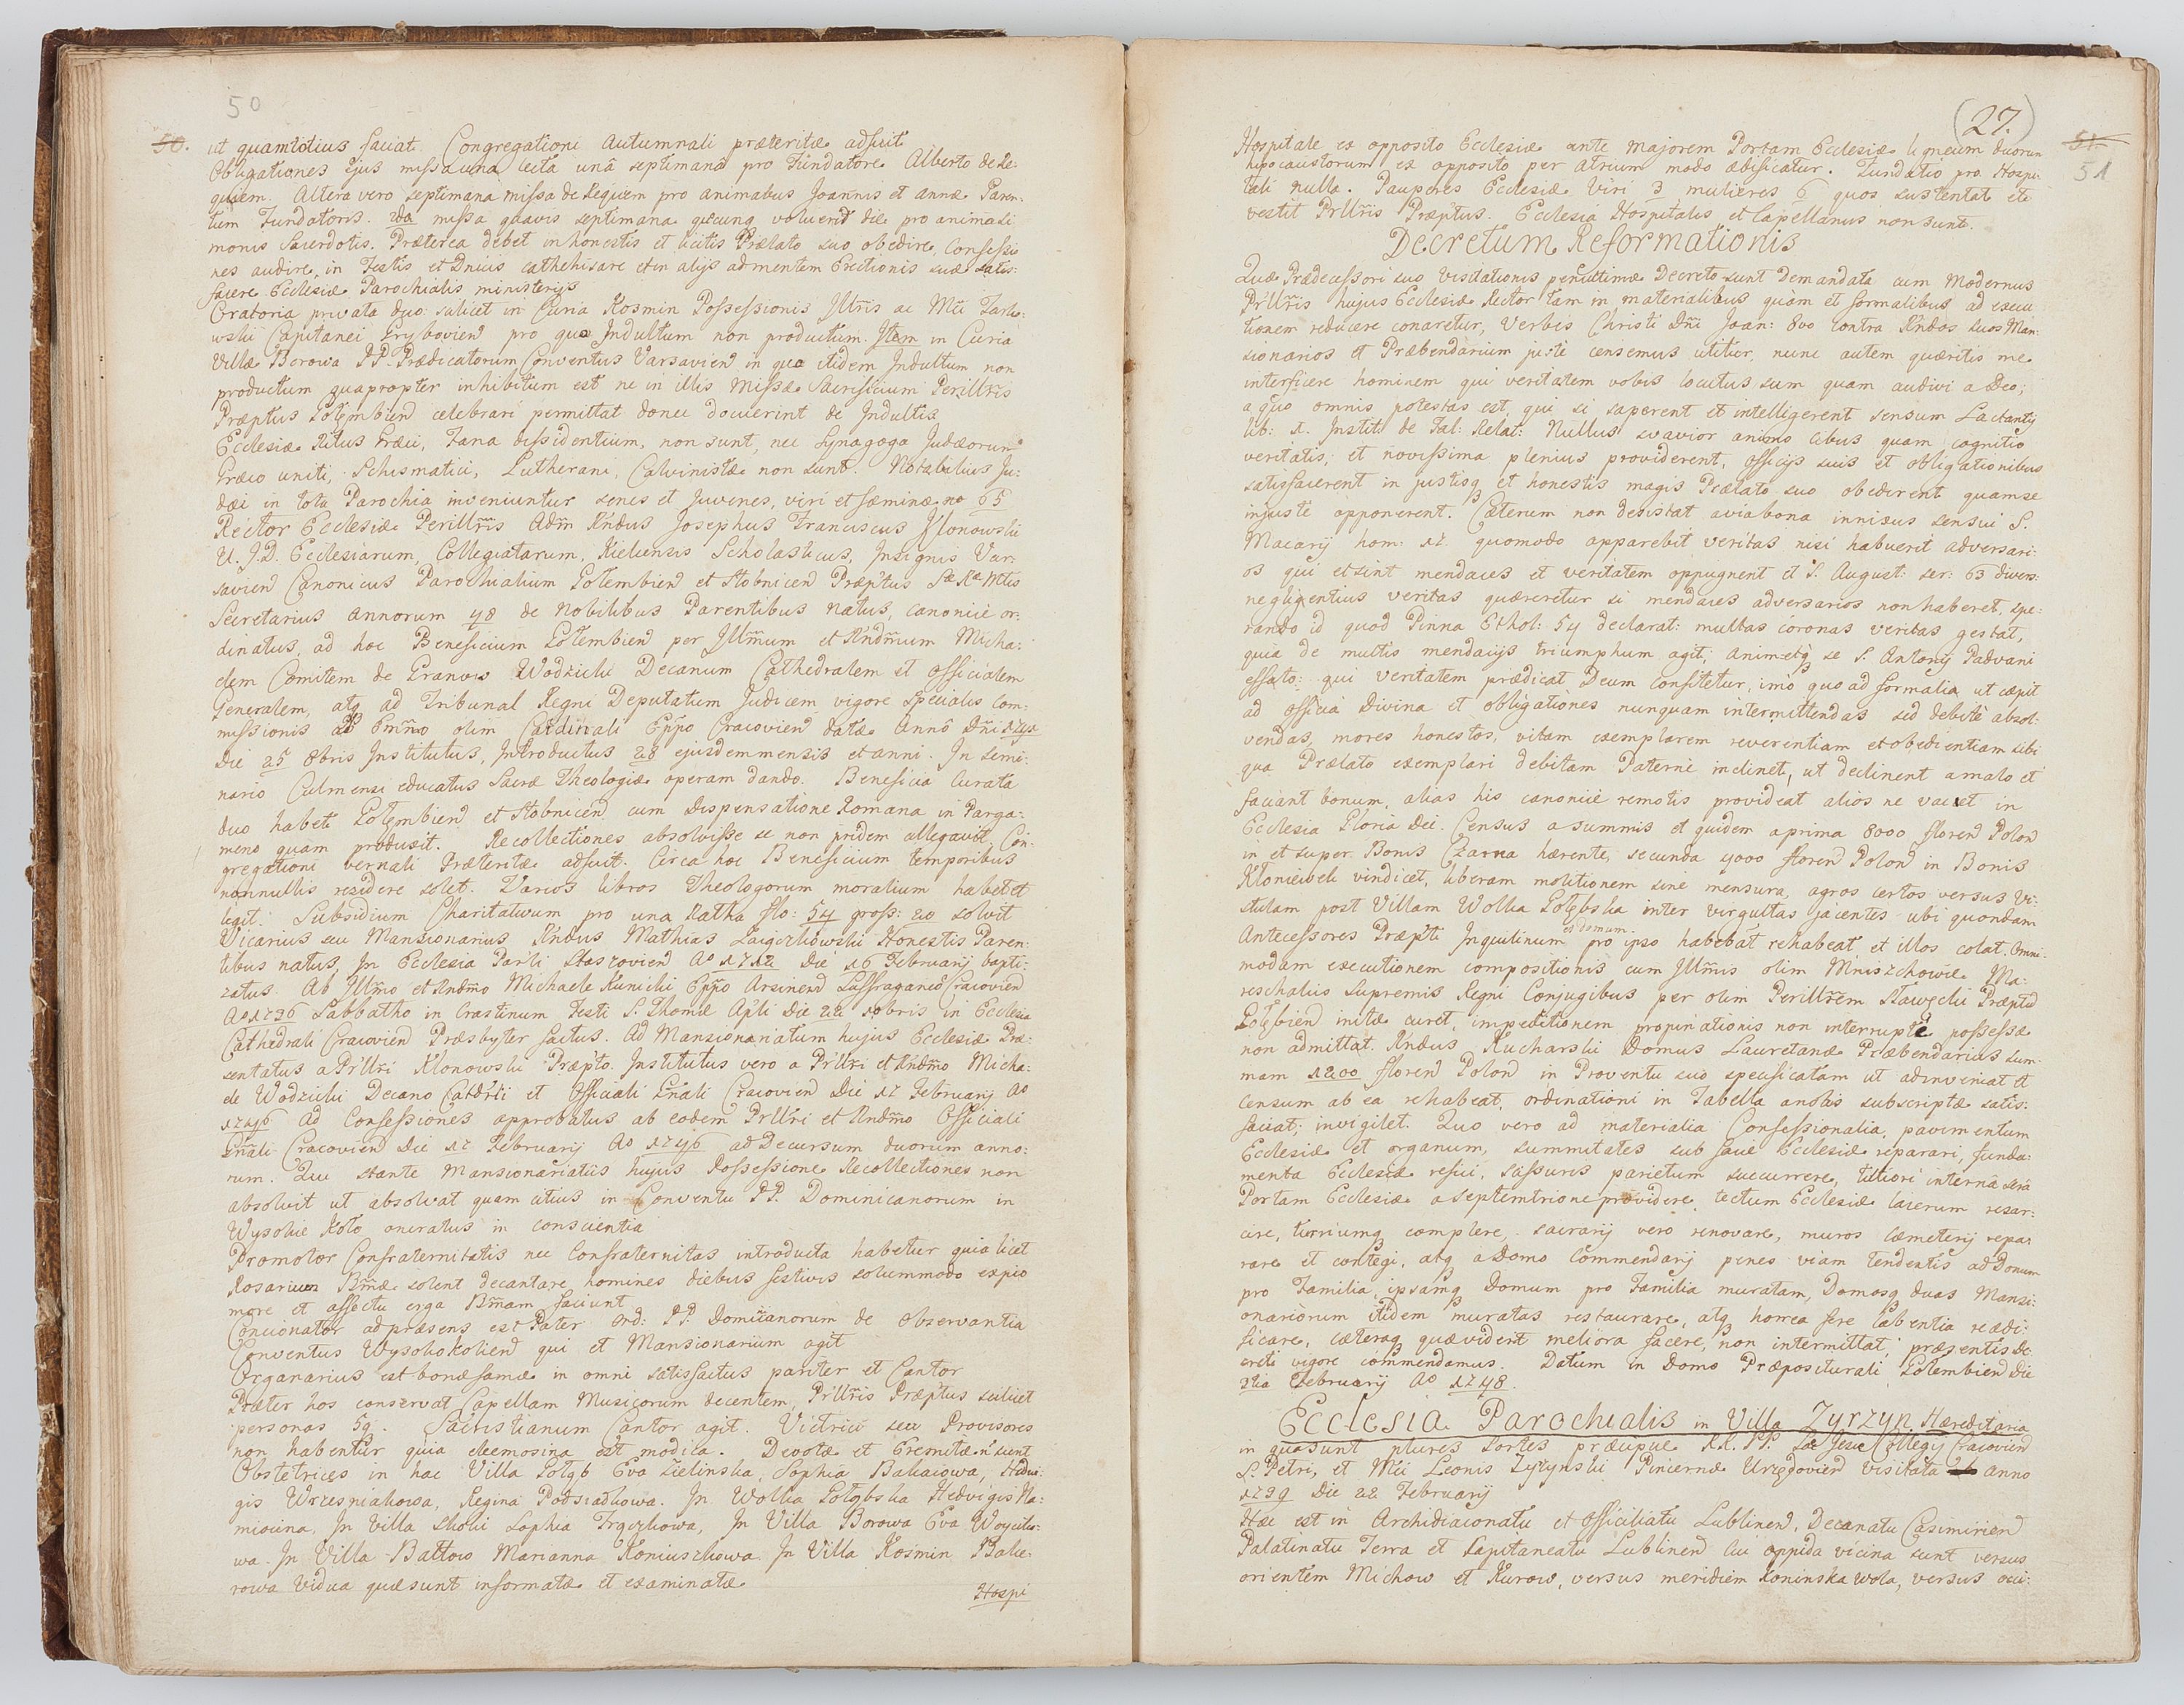 50
50. ut quamtotius faciat. Congregationi Autumnali præteritæ adfuit
Obligationes ejus missa una lecta unâ septimanâ pro Fundatore Alberto de Re-
quiem. Altera vero septimana missa de Requiem pro animabus Joannis et annæ Paren-
tum Fundatoris. 2da missa quavis septimana quacunq voluerit die pro anima Si
monis Sacerdotis. Præterea debet in honestis et licitis Prælato suo obedire, Confessio
nes audire, in Festis et Dnicis cathehisare et in alijs ad mentem Erectionis suæ satis:
facere Ecclesiæ Parochialis ministerijs
Oratoria privata duo scilicet in Curia Kosmin Possessionis Jllris ac Mci Tarło:
wski Capitanei Grybovien pro quo Jndultum non productum. Jtem in Curia
Villæ Borowa PP. Prædicatorum Conventus Varsavien in quo itidem Jndultum non
productum quapropter inhibitum est ne in illis Missæ Sacrificium Perillris
Præptus Gołembien celebrari permittat donec docuerint de Jndultis
Ecclesiæ Ritus Græci, Fana dissidentium, non sunt, nec Synagoga Judæorum
Græco uniti, Schismatici, Lutherani, Calvinistæ non sunt. Notabilius Ju:
dæi in tota Parochia inveniuntur senes et Juvenes, viri et fæminæ no 65
Rector Ecclesiæ Perillris Adm Rndus Josephus Franciscus Kłonowski
U. J. D. Ecclesiarum, Collegiatarum, Kielcensis Scholasticus, Jnsignis Var:
savien Canonicus Parochialium Gołembien et Stobnicen Præptus Sæ Ræ Mtis
Secretarius annorum 48 de Nobilibus Parentibus natus, canonice or:
dinatus, ad hoc Beneficium Gołembien per Jllmum et Rndmum Micha:
elem Comitem de Granow Wodzicki Decanum Cathedralem et Officialem
Generalem, atq ad Tribunal Regni Deputatum Judicem vigore specialis Com:
missionis ab Emmo olim Cardinali Eppo Cracovien datæ Anno Dni 1741
Die 25 8bris Jnstitutus, Jntroductus 28 ejusdem mensis et anni. Jn Semi:
nario Culmensi educatus Sacræ Theologiæ operam dando. Beneficia Curata
duo habet Gołembien et Stobnicen cum Dispensatione Romana in Parga:
meno quam produxit. Recollectiones absolvisse se non pridem allegavit, Con:
gregationi vernali Præteritæ adfuit. Circa hoc Beneficium temporibus
nonnullis residere solet. Varios libros Theologorum moralium habet et
legit. Subsidium Charitativum pro una Ratha flo: 54 gross: 20 solvit
Vicarius seu Mansionarius Rndus Mathias Zaigczkowski Honestis Paren
tibus natus, Jn Ecclesia Parli Staszovien Ao 1712 Die 16 Februarij bapti:
zatus. Ab Jllmo et Rndmo Michaele Kunicki Eppo Arsinen Suffraganeo Cracovien
Ao 1736 Sabbatho in Crastinum Festi S. Thomæ Apli Die 22 10bris in Ecclesia
Cathedrali Cracovien Præsbyter factus. Ad Mansionariatum hujus Ecclesiæ Præ:
sentatus a Prllri Kłonowski Præpto. Jnstitutus vero a Prllri et Rndmo Micha:
ele Wodzicki Decano Cathrli et Officiali Gnali Cracovien Die 17 Februarij Ao
1746 ad Confessiones approbatus ab eodem Prllri et Rndmo Officiali
Gnali Cracovien Die 17 Februarij Ao 1746 ad Decursum duorum anno:
rum. Qui stante Mansionariatus hujus Possessione Recollectiones non
absolvit ut absolvat quam citius in Conventu PP. Dominicanorum in
Wysokie Koło oneratus in conscientia
Promotor Confraternitatis nec Confraternitas introducta habetur quia licet
Rosarium Bmæ solent decantare homines diebus festivis solummodo ex pio
more et affectu erga Bmam faciunt
Concionator ad præsens est Pater Ord: PP. Dominanorum de Observantia
Conventus Wysokokolien qui et Mansionarium agit
Organarius est bonæ famæ in omni satisfactus pariter et Cantor
Præter hos conservat Capellam Musicorum decentem, Prllris Præptus scilicet
personas 5q. Sacristianum Cantor agit. Victrici seu Provisores
non habentur quia eleemosina est modica. Devotæ et Eremitæ n sunt
Obstetrices in hac Villa Gołęb Eva Zielinska, Sophia Bakaiowa, Hedvi:
gis Wrzesniakowa, Regina Podsiadkowa. Jn Wolka Gołębska Hedvigis Na:
mioina, Jn Villa Skoki Sophia Frączkowa, Jn Villa Borowa Eva Woycik:
wa. Jn Villa Bałtow Marianna Koniuszkowa. Jn Villa Kosmin Bake:
rowa Vidua quæ sunt informatæ et examinatæ
Hospi
(27.)
51.
51
Hospitale ex opposito Ecclesiæ ante majorem Portam Ecclesiæ ligneum duorum
hipocaustorum ex opposito per atrium modo ædificatur. Fundatio pro Hospi
tali nulla. Pauperes Ecclesiæ Viri 3 mulieres 6 quos sustentat et
vestit Prllris Præptus. Ecclesia Hospitalis et Capellanus non sunt.
Decretum Reformationis
Quæ Prædecessori suo Visitationis penultimæ Decreto sunt demandata cum Modernus
Prllris hujus Ecclesiæ Rector tam in materialibus quàm et formalibus ad execu
tionem reducere conaretur, Verbis Christi Dni Joan: 8vo contra Rndos suos Man:
sionarios et Præbendarium juste censemus utitur, nunc autem quæritis me
interficere hominem qui veritatem vobis locutus sum quam audivi a Deo;
a quo omnis potestas est, qui si saperent et intelligerent sensum Lactantij
lib: 1. Jnstit: de Fal: Relat: Nullus svavior animo cibus quam cognitio
veritatis; et novissima plenius providerent, officijs suis et obligationibus
satisfacerent in justisq et honestis magis Prælato suo obedirent quam se
injuste opponerent. Cæterum non desistat a via bona innixus sensui S.
Macarij hom: 17. quomodo apparebit veritas nisi habuerit adversari:
os qui et sint mendaces et veritatem oppugnent et S. August: ser: 63 divers:
negligentius veritas quæreretur si mendaces adversarios non haberet, spe:
rando id quod Pinna Ethol: 54 declarat: multas coronas veritas gestat,
quia de multis mendacijs triumphum agit; animetq se S. Antonij Padvani
effato: qui veritatem prædicat Deum confitetur, imo quo ad formalia ut cæpit
ad officia Divina et obligationes nunquam intermittendas sed debite absol:
vendas, mores honestos, vitam exemplarem reverentiam et obedientiam sibi
qua Prælato exemplari debitam Paterne inclinet, ut declinent a malo et
faciant bonum, alias his canonice remotis provideat alios ne vacet in
Ecclesia Gloria Dei. Census a summis et quidem a prima 8000 floren Polon
in et super Bonis Czarna hærente, secunda 4000 floren Polon in Bonis
Kłonieiweli vindicet, liberam molitionem sine mensura, agros certos versus Vi:
stulam post Villam Wolka Gołębska inter virgultas jacentes ubi quondam
Antecessores Præpti Jnquilinum et domum pro ipso habebat rehabeat et illos colat. Omni
modam executionem compositionis cum Jllmis olim Mniszchowie Ma:
reschalcis Supremis Regni Conjugibus per olim Perillrem Stawęcki Præptu
Gołębien initæ curet, impeditionem propinationis non interruptè possessæ
non admittat. Rndus Kucharski Domus Lauretanæ Præbendarius sum
mam 1200 floren Polon in Proventu suo specificatam ut adinveniat et
censum ab ea rehabeat, ordinationi in Tabella anotis subscriptæ satis:
faciat; invigilet. Quo vero ad materialia Confessionalia, pavimentum
Ecclesiæ et organum, summitates sub fave Ecclesiæ reparari, funda:
menta Ecclesiæ refici, fassuris parietum succurrere, tutiori interna sera
Portam Ecclesiæ a septemtrione providere, tectum Ecclesiæ lacerum resar:
cire, turriumq complere, sacrarij vero renovare, muros cæmeterij repa:
rare et contegi, atq a Domo Commendarij penes viam tendentis ad Domum
pro Familia, ipsamq Domum pro Familia muratam, Domosq duas Mansi:
onariorum itidem muratas restaurare, atq horrea fere labentia reædi:
ficare, cæteraq quæ viderit meliora facere, non intermittat, præsentis De:
creti vigore commendamus. Datum in Domo Præpositurali Gołembien Die
2tia Februarij Ao 1748.
Ecclesia Parochialis in Villa Zyrzyn Hæreditaria
in qua sunt plures sortes præcipue RR. PP. Soc Jesu Collegij Cracovien
S. Petri, et Mci Leonis Zyrzynski Pincernæ Urzędovien visitata anno
1739 Die 22 Februarij
Hæc est in Archidiaconatu et officiliatu Lublinen, Decanatu Casimirien
Palatinatu Terra et Capitaneatu Lublinen Cui oppida vicina sunt versus
orientem Michow et Kurow, versus meridiem Koninska wola, versus occi: